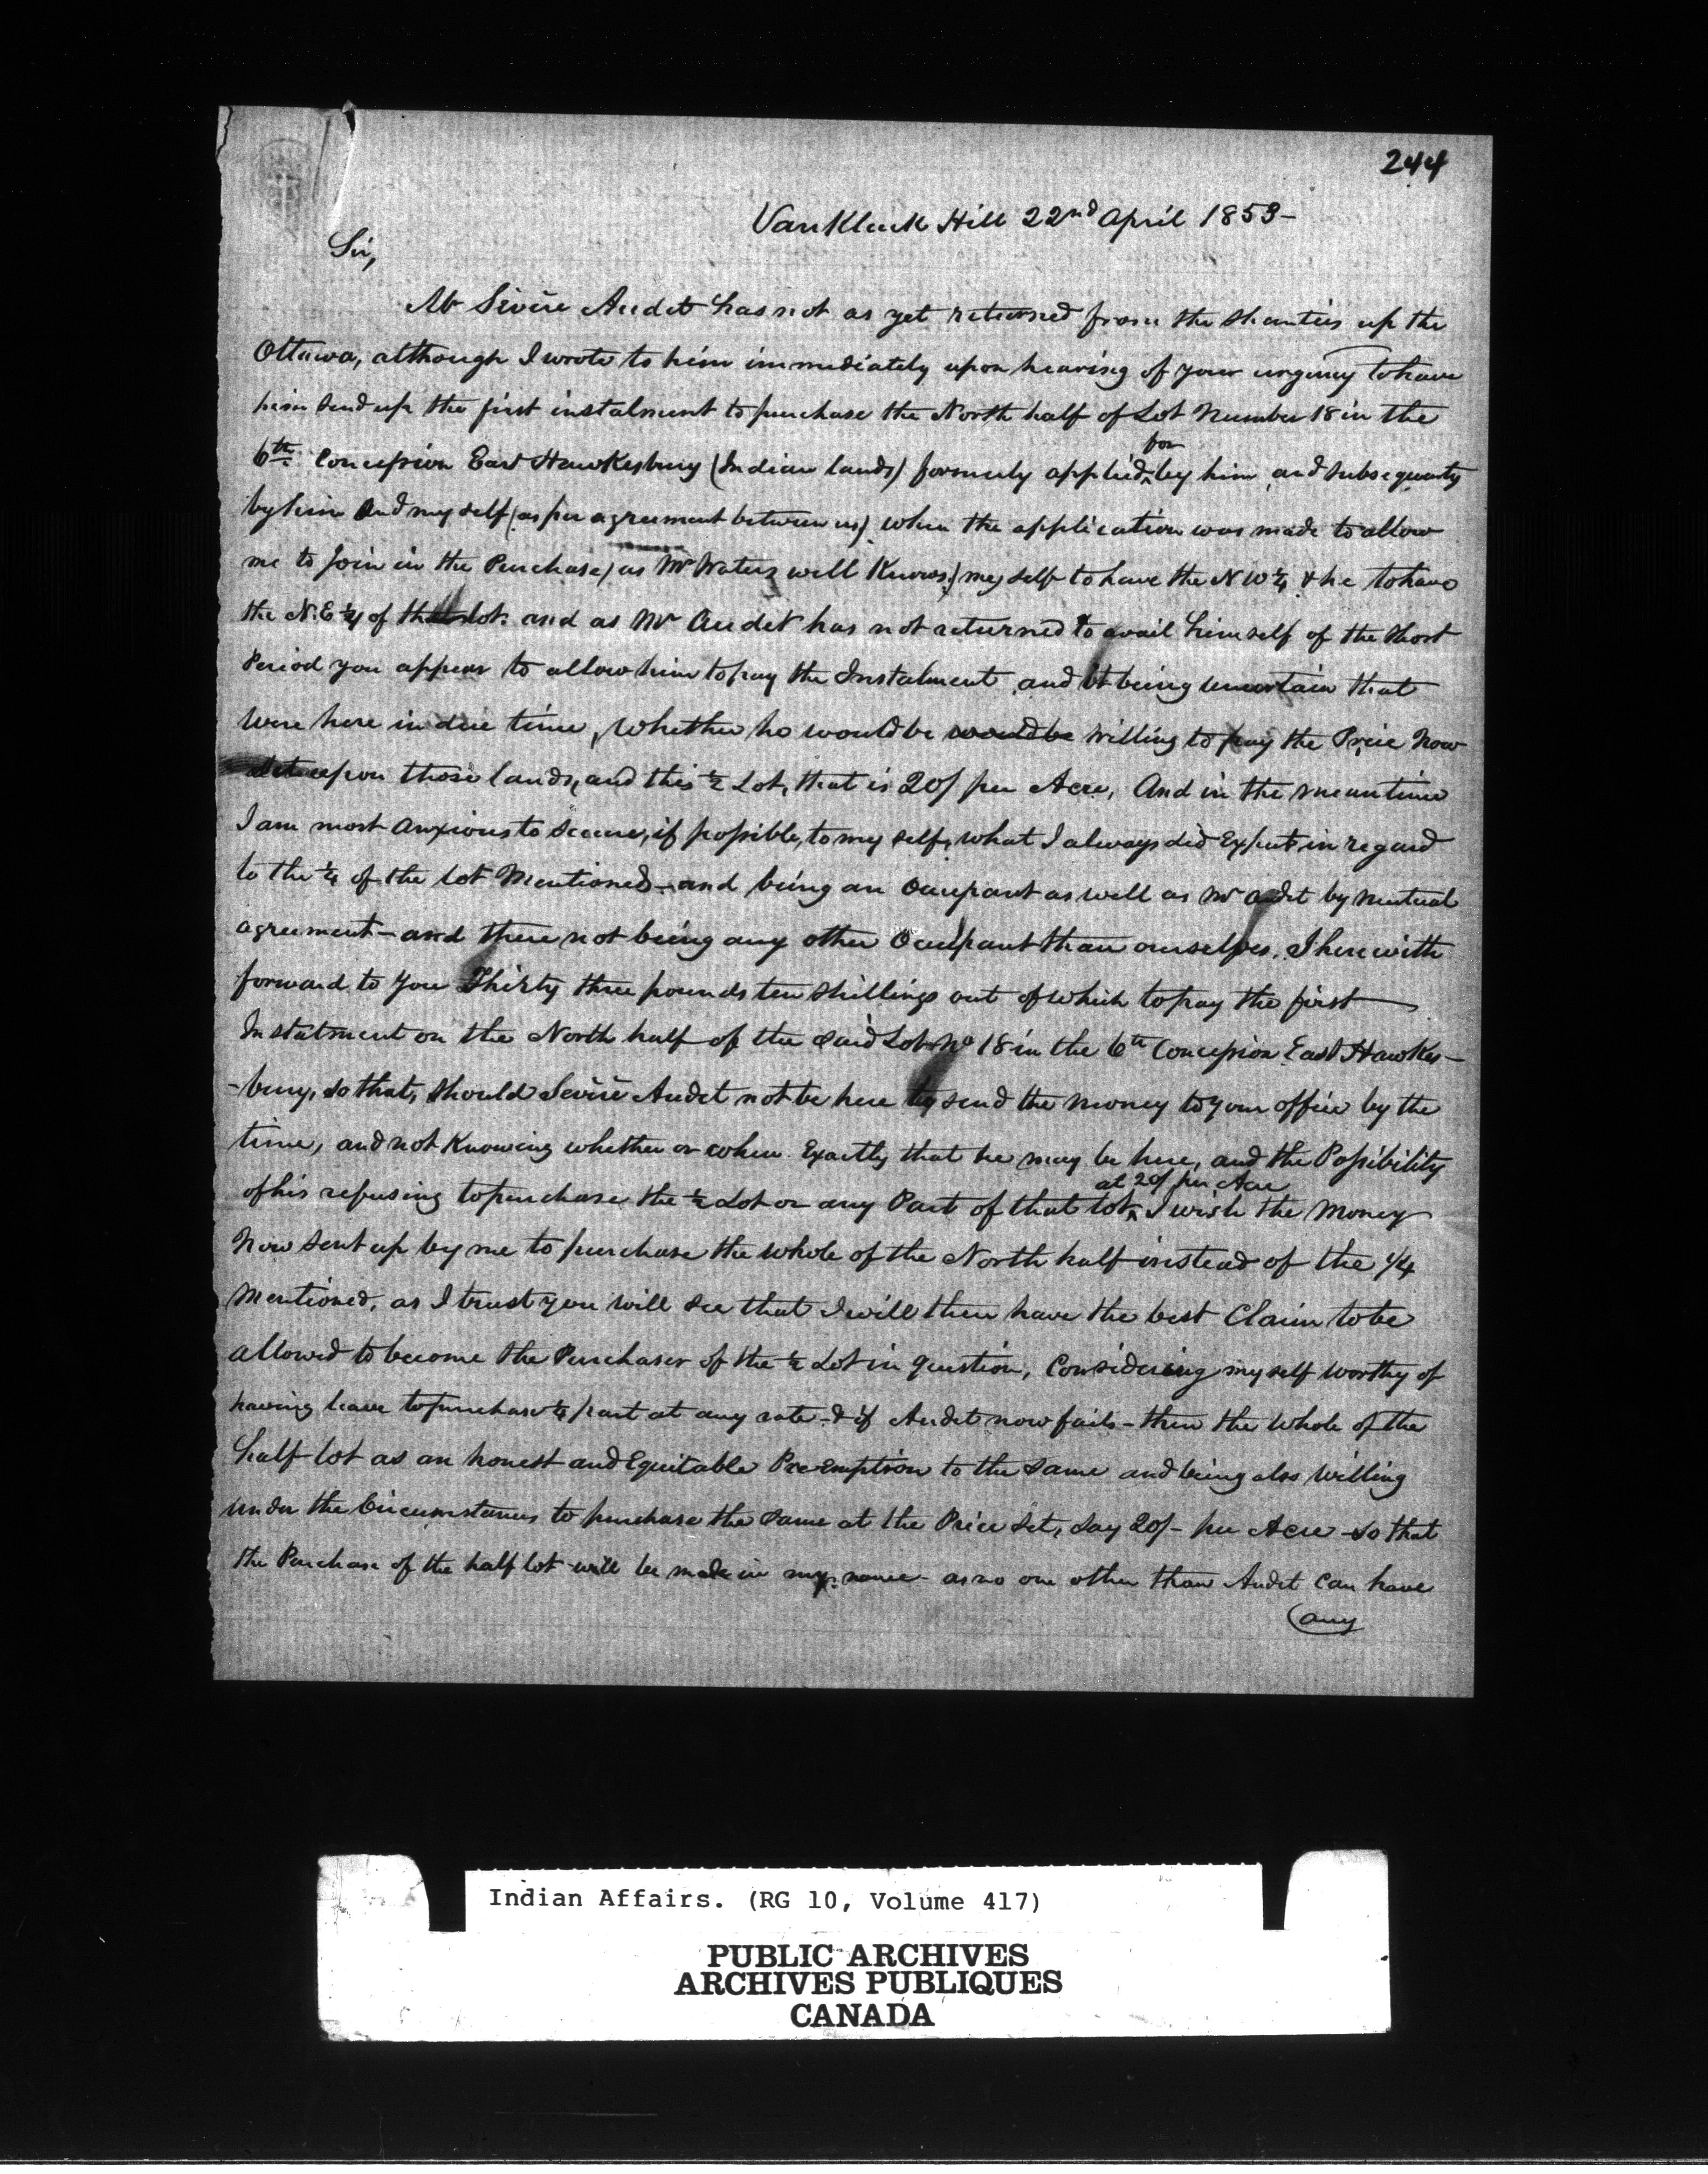 244
VanKleek Hill 22nd April 1853-
Sir,
Mr Sivère Audet has not as yet returned from the Shanties up the
Ottawa, although I wrote to him immediately upon hearing of your urgency to have
him send up the first instalment to purchase the North half of Lot Number 18 in the
for
6th Concession East Hawkesbury (Indian lands) formerly applied by him, and subsequently
by him and myself (as per agreement between us) when the application was made to allow
me to join in the Purchase, (as Mr Waters well Knows.) myself to have the N W ¼ & he to have
the N.E ¼ of that lot. and as Mr Audet has not returned to avail himself of the Short
Period you appear to allow him to pay the Instalment, and it being uncertain that
were here in due time, Whether he would be would be willing to pay the Price Now
Set upon those lands, and this ½ Lot, that is 20/ per Acre, And in the meantime
I am most Anxious to Secure, if possible, to myself, what I always did Expect in regard
to the ¼ of the lot Mentioned - and being an Occupant as well as Mr Audet by mutual
agreement - and there not being any other Occupant than ourselves. I herewith
forward to You Thirty three pounds ten Shillings out of which to pay the first
Instalment on the North half of the said Lot No 18 in the 6th Concession East Hawkes-
-bury, so that, should Sevère Audet not be here to send the money to your office by the
time, and not Knowing whether or when Exactly that he may be here, and the Possibility
at 20/ per Acre
of his refusing to purchase the ½ Lot or any Part of that lot, I wish the Money
Now sent up by me to purchase the whole of the North half instead of the ¼
Mentioned, as I trust you will see that I will then have the best Claim to be
allowed to become the Purchaser of the ½ Lot in question, Considering myself worthy of
having leave to purchase ¼ part at any rate - & if Audet now fails - then the Whole of the
half lot as an honest and Equitable Pre-emption to the same and being also willing
under the Circumstances to purchase the same at the Price Set, say 20/- per Acre - so that
the Purchase of the half lot will be made in my name - as no one other than Audet Can have
any
Indian Affairs. (RG 10, Volume 417)
PUBLIC ARCHIVES
ARCHIVES PUBLIQUES
CANADA